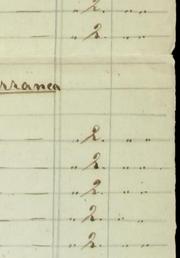 „ 2. „ „
„ 2. „ „
rranea
„ 2. „ „
„ 2. „ „
„ 2. „ „
„ 2. „ „
„ 2. „ „